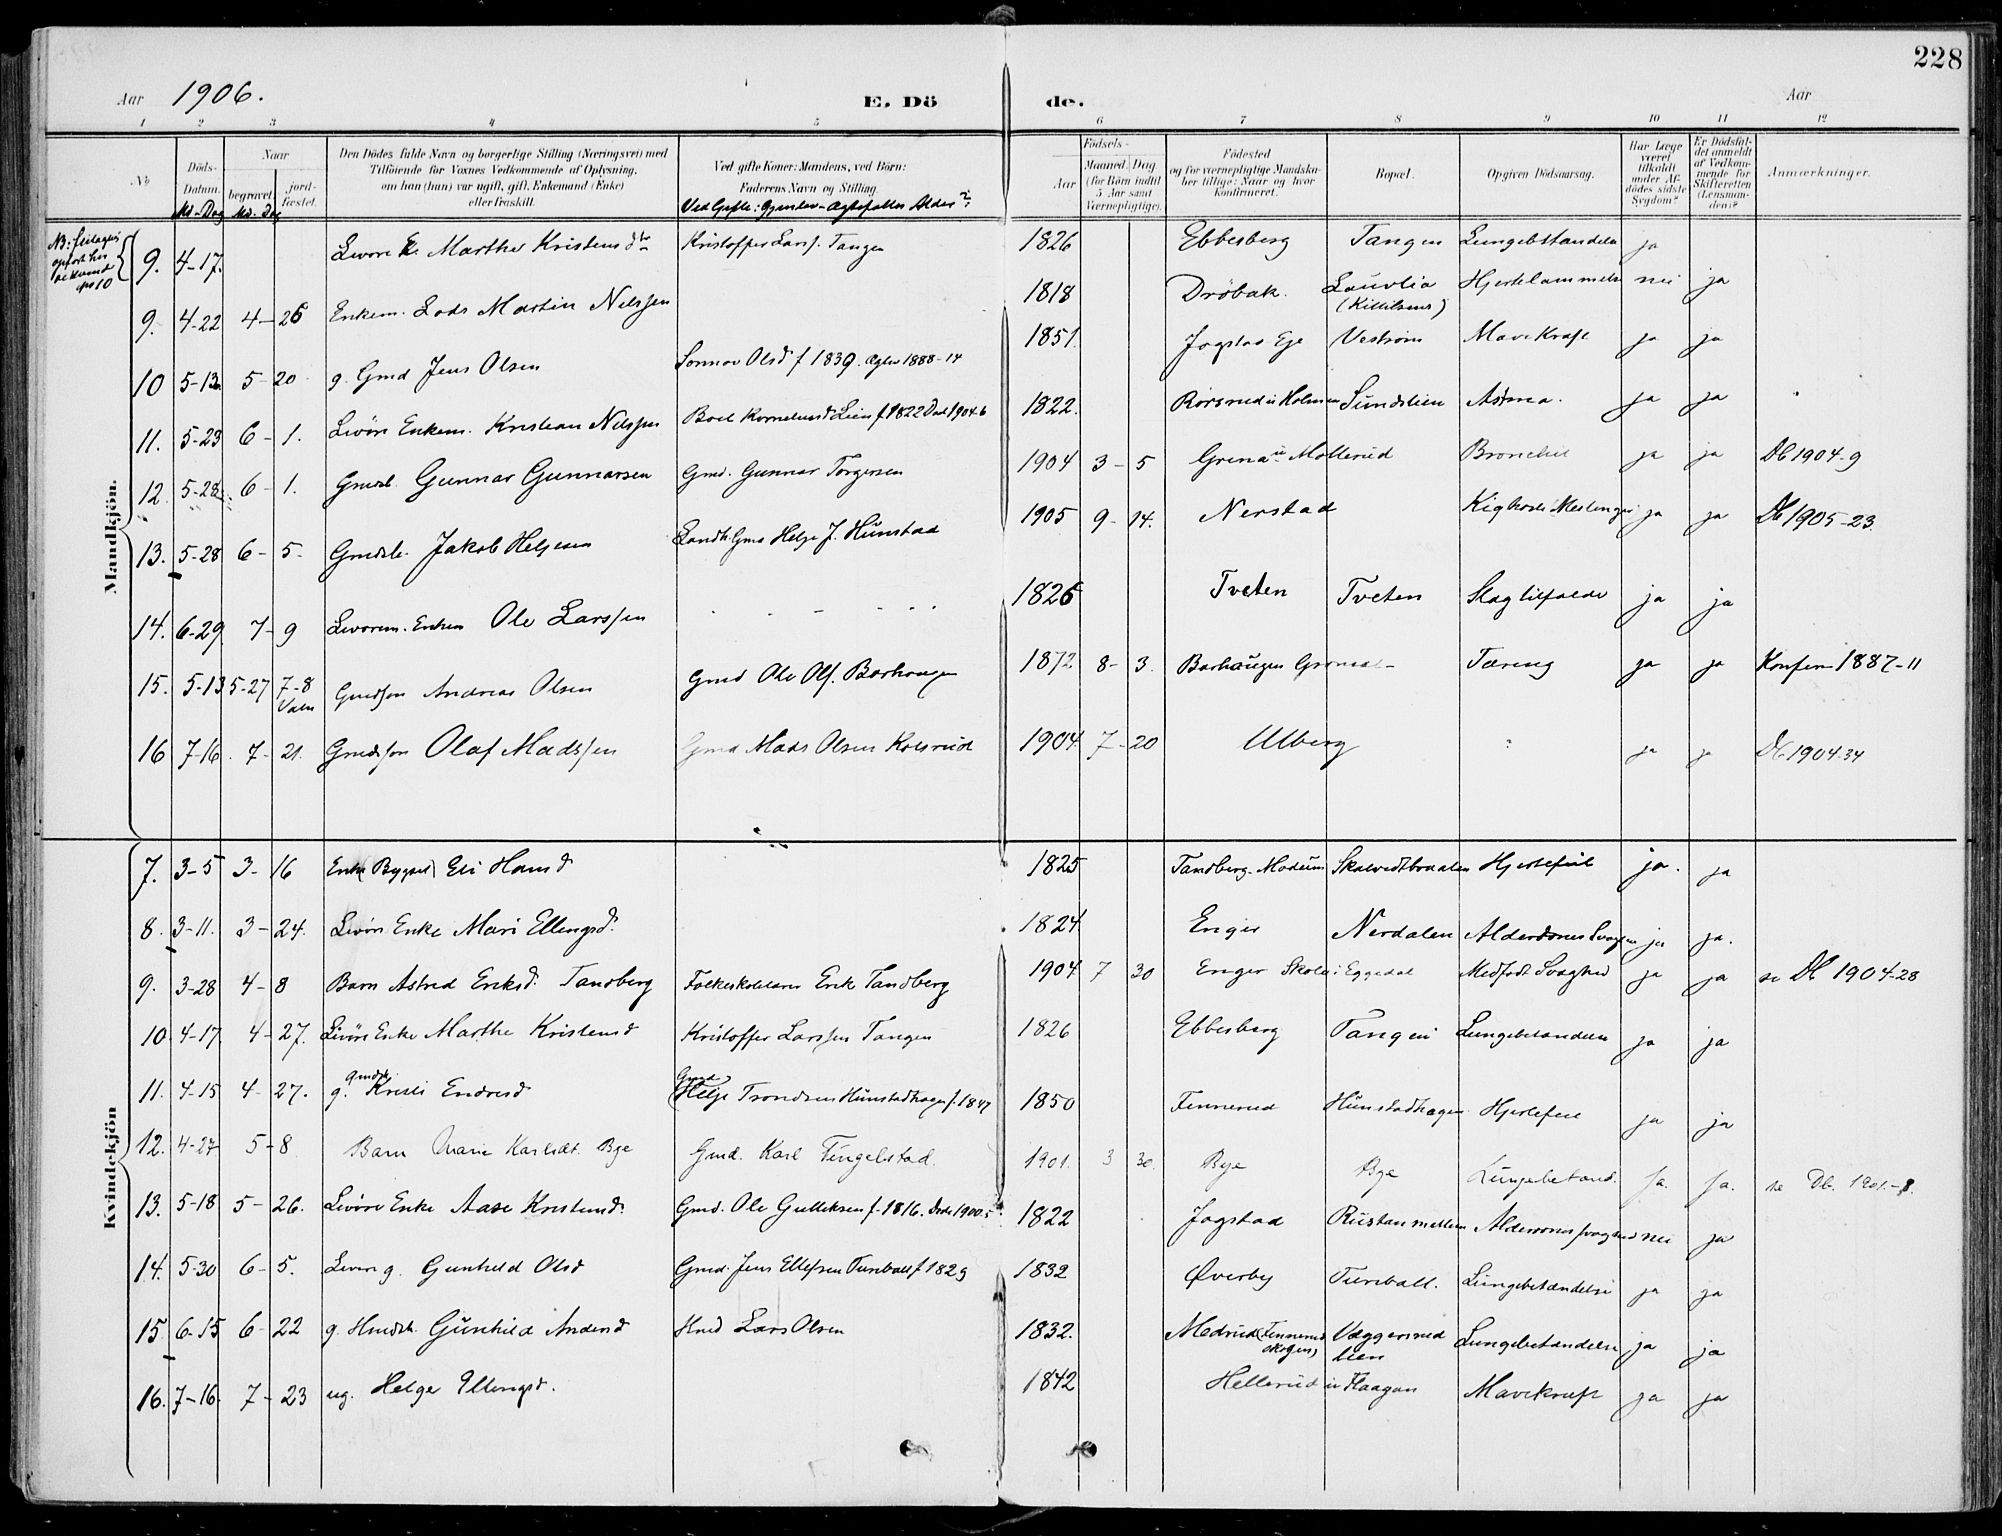 228
Aar 1906. E. Dö de. Aar
1 2 3 4 5 6 7 8 9 10 11 12
No
Döds-
Datum.
Md-Dag
Naar
begravet
Md-Dag
jord-
fæstet.
Den Dödes fulde Navn og borgerlige Stilling (Næringsvei) med
Tilföiende for Voxnes Vedkommende af Oplysning,
om han (hun) var ugift, gift, Enkemand (Enke)
eller fraskilt.
Ved gifte Koner: Mandens, ved Börn:
Faderens Navn og Stilling.
Födsels-
Aar
Maaned. Dag
(for Börn indtil
5 Aar samt
Værnepligtige).
Födested
og for værnepligtige Mandska-
ber tillige: Naar og hvor
konfirmeret.
Bopæl.
Opgiven Dödsaarsag.
Har Læge
været
tilkaldt
under Af-
dödes sidste
Sygdom?
Er Dödsfal-
det anmeldt
af Vedkom-
mende for
Skifteretten
(Lensman-
den)?
Anmærkninger.
Mandkjön.
NB: feilagtig
opført her
se kvind
No 10
9. 4-17. Livøre E. Marthe Kristensdtr Kristoffer Larss. Tangen 1826 Ebbesberg Tangen ja
9. 4-22 4-26 Enkem. Lods Martin Nilssen 1818 Dröbak. Lauvlia (Kittilsens) nei ja
10 5-13 5-20 g. Gmd Jens Olsen Olsd f 1839. 1888-14 1851. Jogstad Eje Mavekræft ja ja
11. 5-23 6-1. Livöre Enkem. Kristian Nilssen f. 1822 Död 1904-6 1822. Sundslien Astma. ja ja
12 5-28 6-1. Gmdsb. Gunnar Gunnarsen Gmd. Gunnar Torgersen 1904 3-5 Møllerud ja ja Db 1904-9
13. 5-28 6-5. Gmdsb. Jakob Helgesen Gmd Helge J. Hunstad 1905 9-14. Nerstad ja ja Db 1905-23.
14. 6-29 7-9 Ole Larssen 1826 Tveten Tveten Slagtilfælde ja ja
15. 5-13 5-27 7-8 Gmdssøn Andreas Olsen Gmd Ole Ols. Barhaugen 1872 8-3. Barhaugen Tæring ja ja Konfirm 1887-11
16 7-16. 7-21. Gmdssøn Olaf Madssen Gmd Mads Olsen Kolsrud 1904. 7-20 Ulberg ja ja Db 1904-34
Kvindekjön
7. 3-5 3-16 Enke Eli Hansd 1825 Tandberg. Modum Hjertefeil ja. ja
8. 3-11. 3-24. Livöre Enke Mari Ellingsd. 1824 Enger Nerdalen ja ja.
9. 3-28 4-8 Barn Astrid Eriksd. Tandberg Folkeskolelærer Erik Tandberg 1904. 7 30 Enger Skole i Eggedal Medfødt Svaghed ja ja se Db 1904-28
10. 4-17 4-27. Livöre Enke Marthe Kristensd Kristoffer Larssen Tangen 1826 Ebbesberg Tangen Lungebetændelse ja ja
11. 4-15 4-27. g. Gmdsk. Kristi Endresd Gmd Helge Trondsen Hunstadhagen f. 1847 1850 Finnerud Hunstadhagen Hjertefeil ja ja
12. 4-27 5-8 Barn Marie Karlsdt. Bye Gmd. Karl Tingelstad. 1901. 3 30. Bye Bye Lungebetænd. ja. ja. se Db. 1901.-8.
13. 5-18 5-26. Livöre Enke Aase Kristensd. Gmd. Ole Gulliksen f. 1816. Död 1900-5 1822 Jogstad nei ja
14. 5-30 6-5. g. Gunhild Olsd Gmd. Jens Ellefsen f 1829 1832 Øverby Lungebetændelse ja ja
15. 6-15 6-22 g. Hmdsk. Gunhild Andersd Hmd Lars Olsen 1832. Medrud (Finnerud skogen) Væggersrud lien Lungebetændelse ja ja
16. 7-16. 7-23 ug. Helge Ellingsd. 1842 Hellerud Haagan Mavekræft ja ja